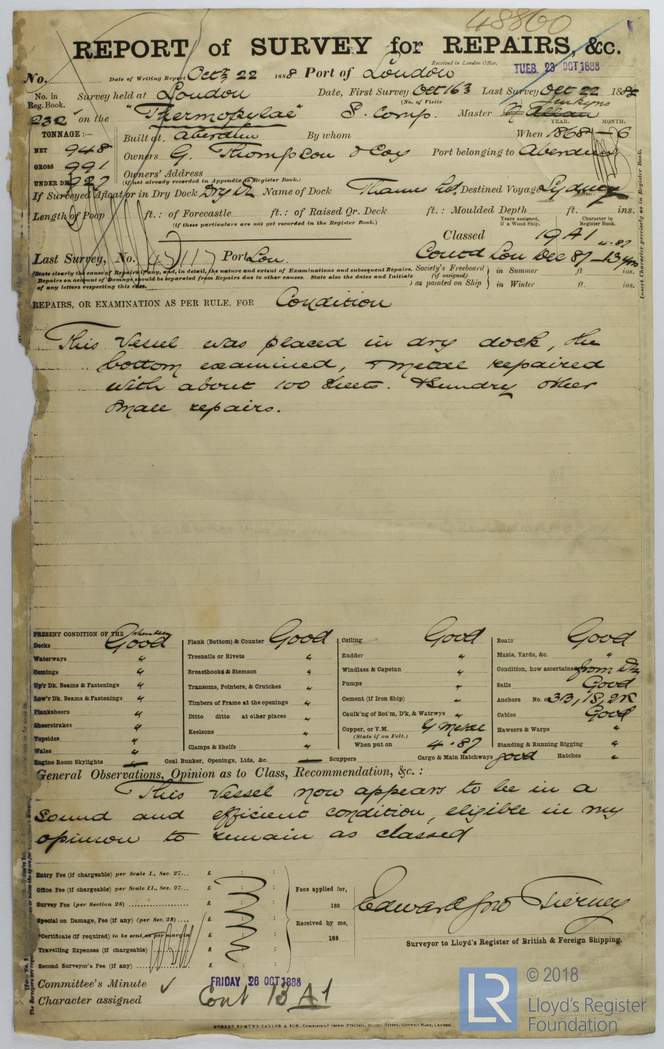 48860
REPORT of SURVEY for REPAIRS, &c.
Received in London Office,
TUES. 23 OCT 1888
No. Date of Writing Report Octr 22 1888 Port of London
No. in Reg. Book. Survey held at London Date, First Survey Oct 16th Last Survey Oct 22 1888
(No. of Visits
232 on the "Thermopylae" S. Comp. Master Allan Jenkyns
TONNAGE:— Built at Aberdeen By whom When 1868 — 6
YEAR. MONTH.
NET 948 Owners G. Thompson & Coy Port belonging to Aberdeen
GROSS 991 Owners' Address
(if not already recorded in Appendix to Register Book.)
UNDER DK 927
If Surveyed Afloat or in Dry Dock Dry Dk Name of Dock Thames Destined Voyage Sydney
Length of Poop ft.: of Forecastle ft.: of Raised Qr. Deck ft.: Moulded Depth ft. ins.
(if these particulars are not yet recorded in the Register Book.)
Years assigned, if a Wood Ship. Character in Register Book.
Classed 19 A1
Last Survey, No. 45117 Port Lon. Contd Lon Dec 81 — 13 yrs 4.87
State clearly the cause of Repairs, if any, and, in detail, the nature and extent of Examinations and subsequent Repairs.
Repairs on account of Damage should be separated from Repairs due to other causes. State also the dates and Initials
of any letters respecting this case.
Society's Freeboard (if assigned) as painted on Ship
in Summer ft. ins.
in Winter ft. ins.
REPAIRS, OR EXAMINATION AS PER RULE, FOR Condition
This Vessel was placed in dry dock, the
bottom examined, & metal repaired
with about 100 sheets. & sundry other
small repairs.
PRESENT CONDITION OF THE
Decks Good
Waterways "
Comings "
Up'r Dk. Beams & Fastenings "
Low'r Dk. Beams & Fastenings "
Planksheers "
Sheerstrakes "
Topsides "
Wales "
Engine Room Skylights —
Plank (Bottom) & Counter Good
Treenails or Rivets "
Breasthooks & Stemson "
Transoms, Pointers, & Crutches "
Timbers of Frame at the openings "
Ditto ditto at other places "
Keelsons "
Clamps & Shelfs "
Coal Bunker, Openings, Lids, &c. —
Ceiling Good
Rudder "
Windlass & Capstan "
Pumps "
Cement (if Iron Ship) "
Caulk'ng of Bot'm, D'k, & Watrwys "
Copper, or Y.M. Y Metal
(State if on Felt.)
When put on 4.87
Scuppers Cargo & Main Hatchways good Hatches "
Boats Good
Masts, Yards, &c. "
Condition, how ascertained from Dk
Sails Good
Anchors No. of 3B, 1S, 2K
Cables Good
Hawsers & Warps "
Standing & Running Rigging "
General Observations, Opinion as to Class, Recommendation, &c.:
This Vessel now appears to be in a
sound and efficient condition, eligible in my
opinion to remain as classed
Entry Fee (if chargeable) per Scale I., Sec. 27... £ : :
Office Fee (if chargeable) per Scale II., Sec. 27... £ : :
Survey Fee (per Section 28) £ : :
Special on Damage, Fee (if any) (per Sec. 28) £ : :
*Certificate (if required) to be sent as per margin
Travelling Expenses (if chargeable) £ : :
Second Surveyor's Fee (if any) £ : :
Fees applied for,
188
Received by me,
188
Edward Jno Tierney
Surveyor to Lloyd's Register of British & Foreign Shipping.
Committee's Minute FRIDAY 26 OCT 1888
Character assigned Cont 13 A1
© 2018
LR Lloyd's Register
Foundation